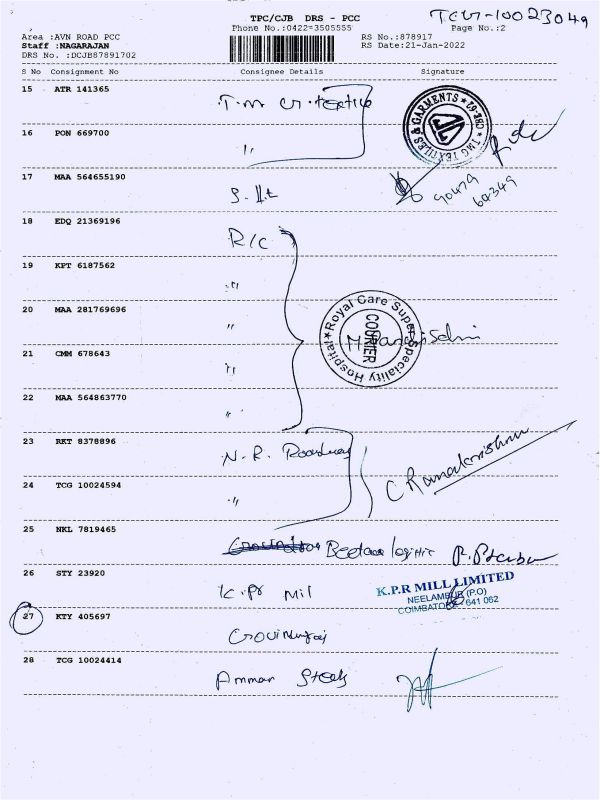 TPC/CJB DRS - PCC
TCG-10023049
Area :AVN ROAD PCC
Phone No.:0422=3505555
Page No.:2
Staff :NAGARAJAN
RS No.:878917
DRS No. :DCJB87891702
RS Date:21-Jan-2022
S No Consignment No Consignee Details Signature
15 ATR 141365
TMG TEXTILES & GARMENTS * CBE-62 *
16 PON 669700 "
17 MAA 564655190
90479
60349
18 EDQ 21369196 R/C
19 KPT 6187562 "
20 MAA 281769696 "
Royal Care Super Speciality Hospital
COURIER
21 CMM 678643 "
22 MAA 564863770 "
23 RKT 8378896 N.R. Roadways
C Ramakrishna
24 TCG 10024594 "
25 NKL 7819465 logistic
26 STY 23920 K.PR Mil
K.P.R MILL LIMITED
NEELAMBUR (P.O)
COIMBATORE - 641 062
27 KTY 405697 Govindaraj
28 TCG 10024414 Ammar Steels